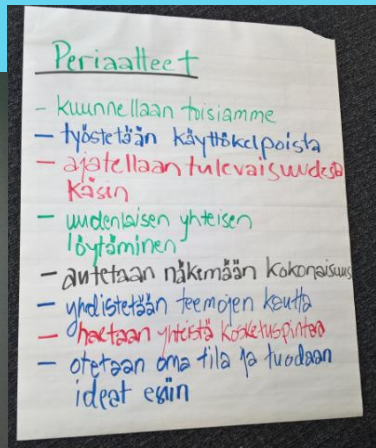 Periaatteet
- kuunnellaan toisiamme
- työstetään käyttökelpoista
- ajatellaan tulevaisuudesta
käsin
- uudenlaisen yhteisen
löytäminen
- autetaan näkemään kokonaisuus
- yhdistetään teemojen kautta
- haetaan yhteistä kosketuspintaa
- otetaan oma tila ja tuodaan
ideat esiin